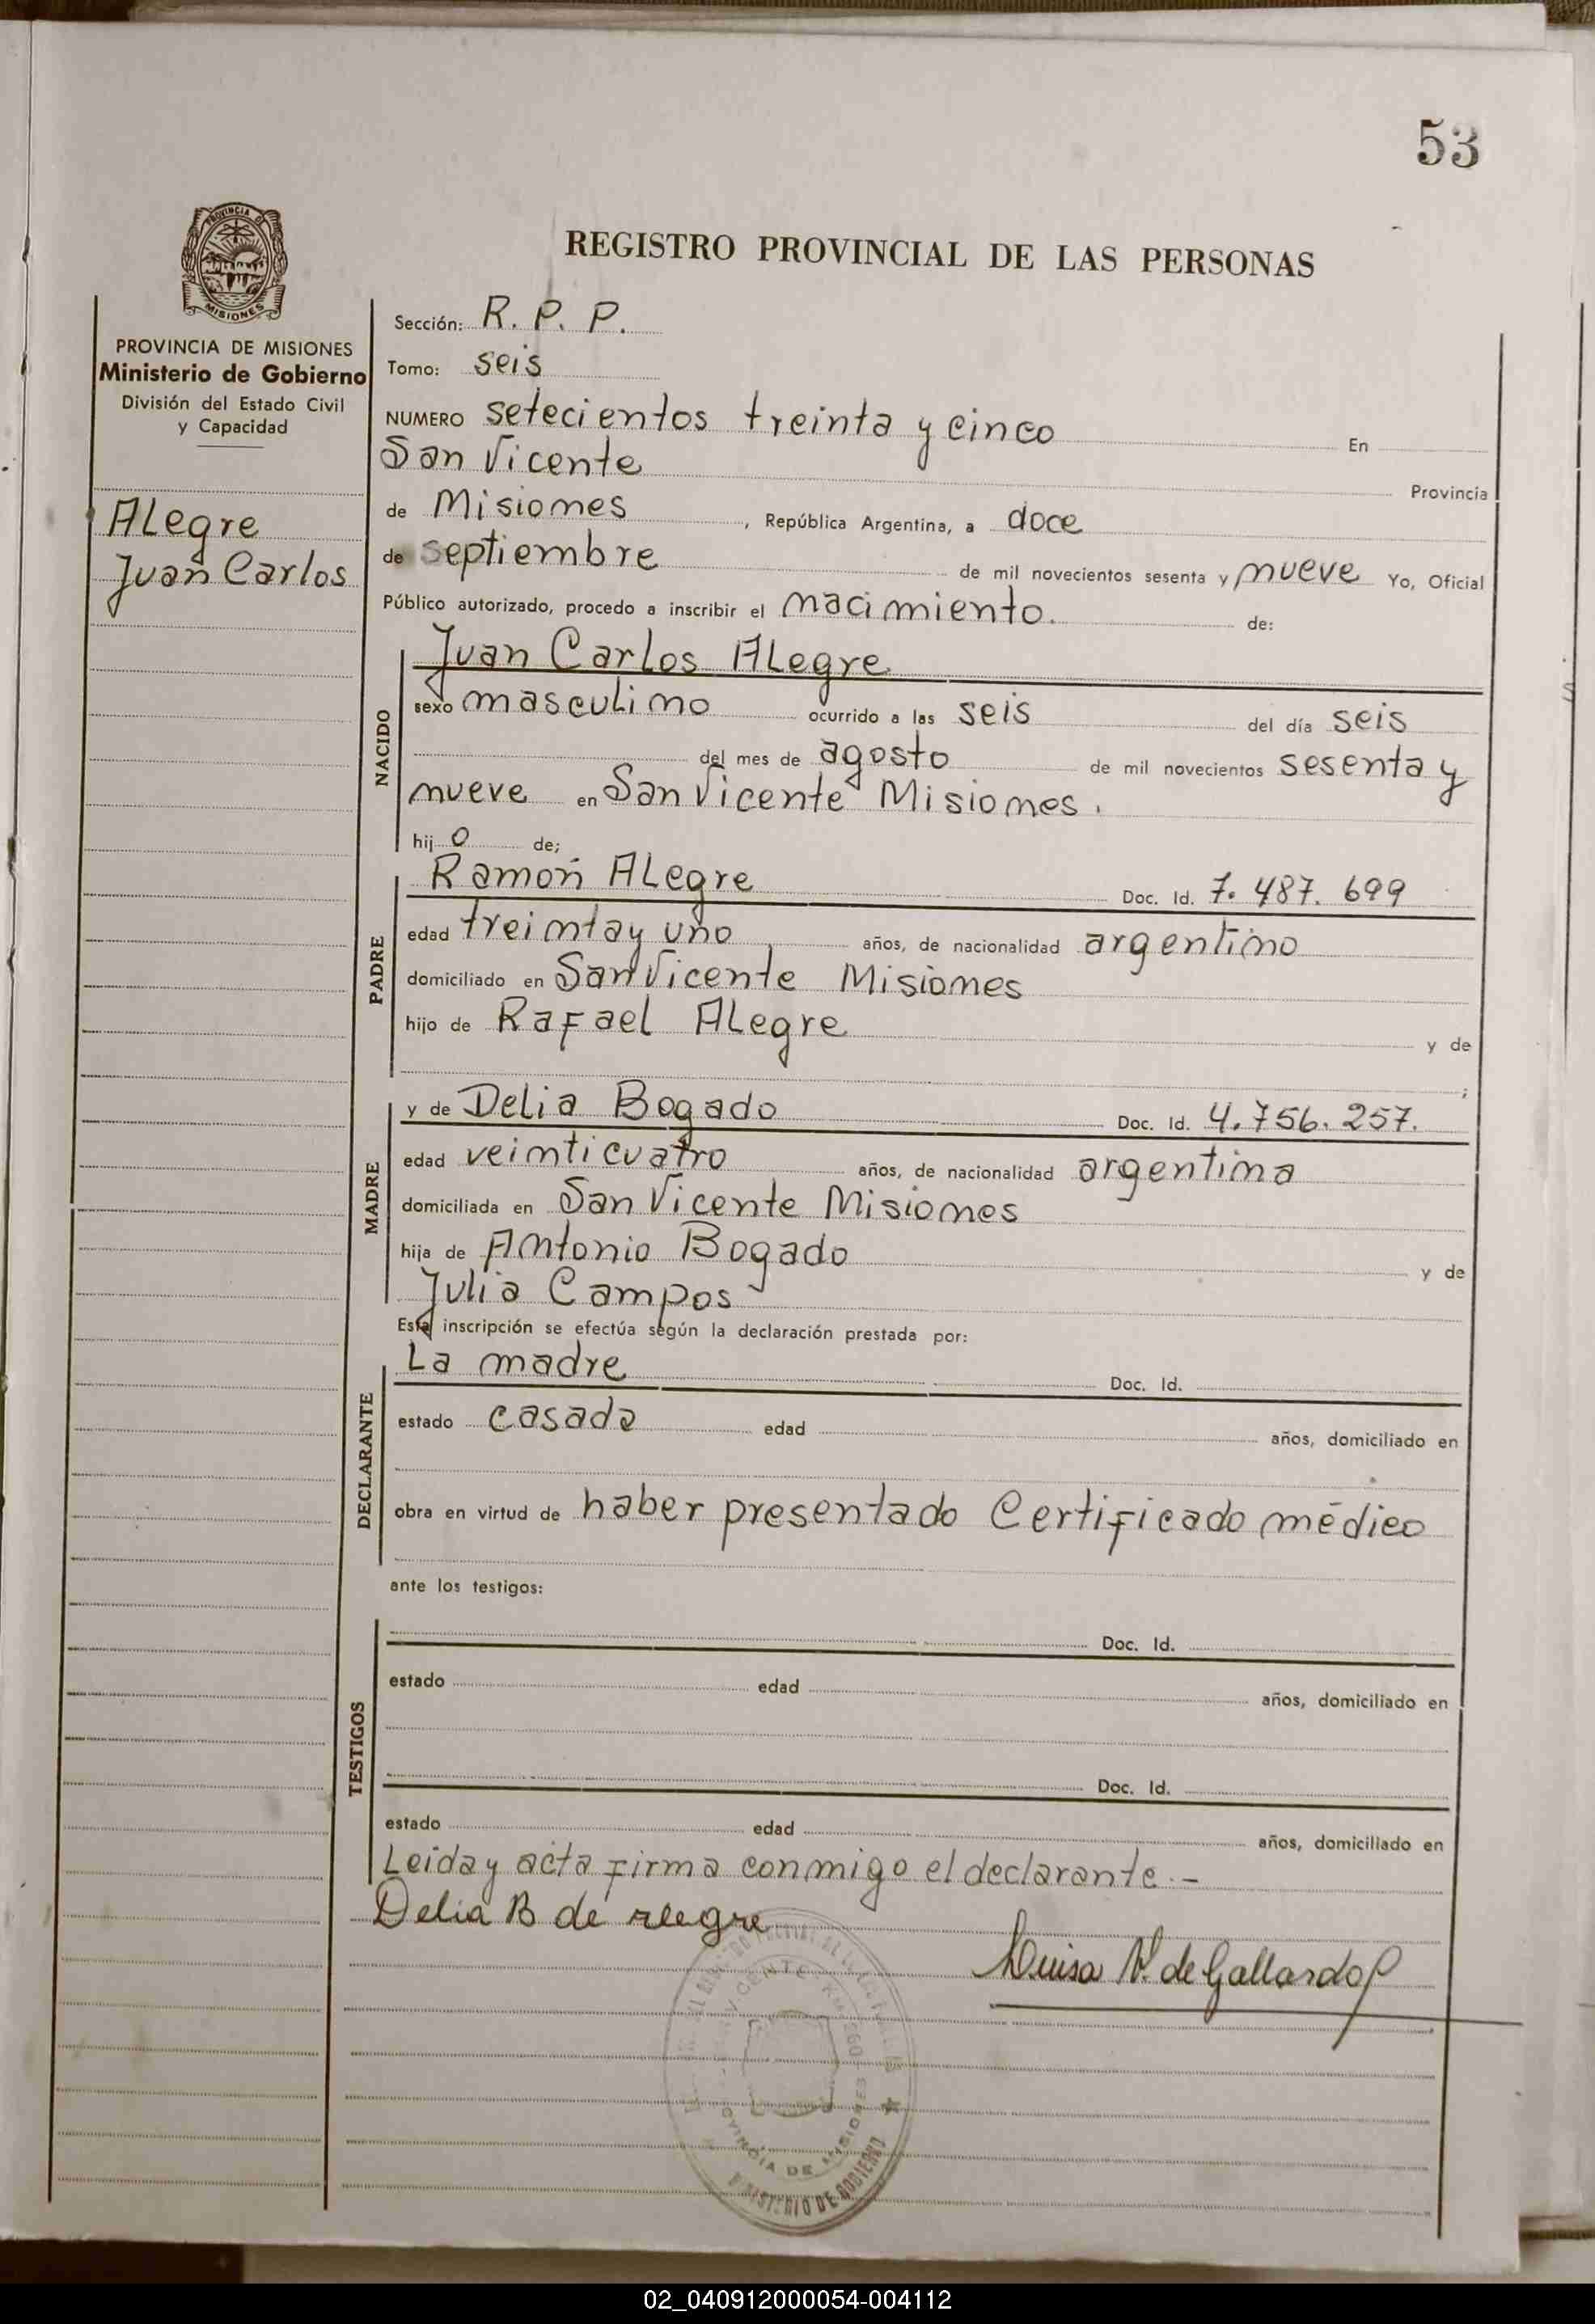 53
PROVINCIA DE
MISIONES
REGISTRO PROVINCIAL DE LAS PERSONAS
PROVINCIA DE MISIONES
Ministerio de Gobierno
División del Estado Civil
y Capacidad
Alegre
Juan Carlos
Sección: R. P. P.
Tomo: seis
NUMERO setecientos treinta y cinco En
San Vicente Provincia
de Misiones, República Argentina, a doce
de septiembre de mil novecientos sesenta y nueve Yo, Oficial
Público autorizado, procedo a inscribir el nacimiento. de:
NACIDO
Juan Carlos Alegre
sexo masculino ocurrido a las seis del día seis
del mes de agosto de mil novecientos sesenta y
nueve en San Vicente Misiones.
hijo de;
PADRE
Ramón Alegre Doc. Id. 7.487.699
edad treinta y uno años, de nacionalidad argentino
domiciliado en San Vicente Misiones
hijo de Rafael Alegre y de
;
MADRE
y de Delia Bogado Doc. Id. 4.756.257.
edad veinticuatro años, de nacionalidad argentina
domiciliada en San Vicente Misiones
hija de Antonio Bogado y de
Julia Campos
Esta inscripción se efectúa según la declaración prestada por:
DECLARANTE
La madre Doc. Id.
estado casada edad años, domiciliado en
obra en virtud de haber presentado Certificado médico
ante los testigos:
TESTIGOS
Doc. Id.
estado edad años, domiciliado en
Doc. Id.
estado edad años, domiciliado en
Leida y acta firma conmigo el declarante.-
Delia B de alegre
Luisa V. de Gallardo
PROVINCIA DE MISIONES
MINISTERIO DE GOBIERNO
02_040912000054-004112